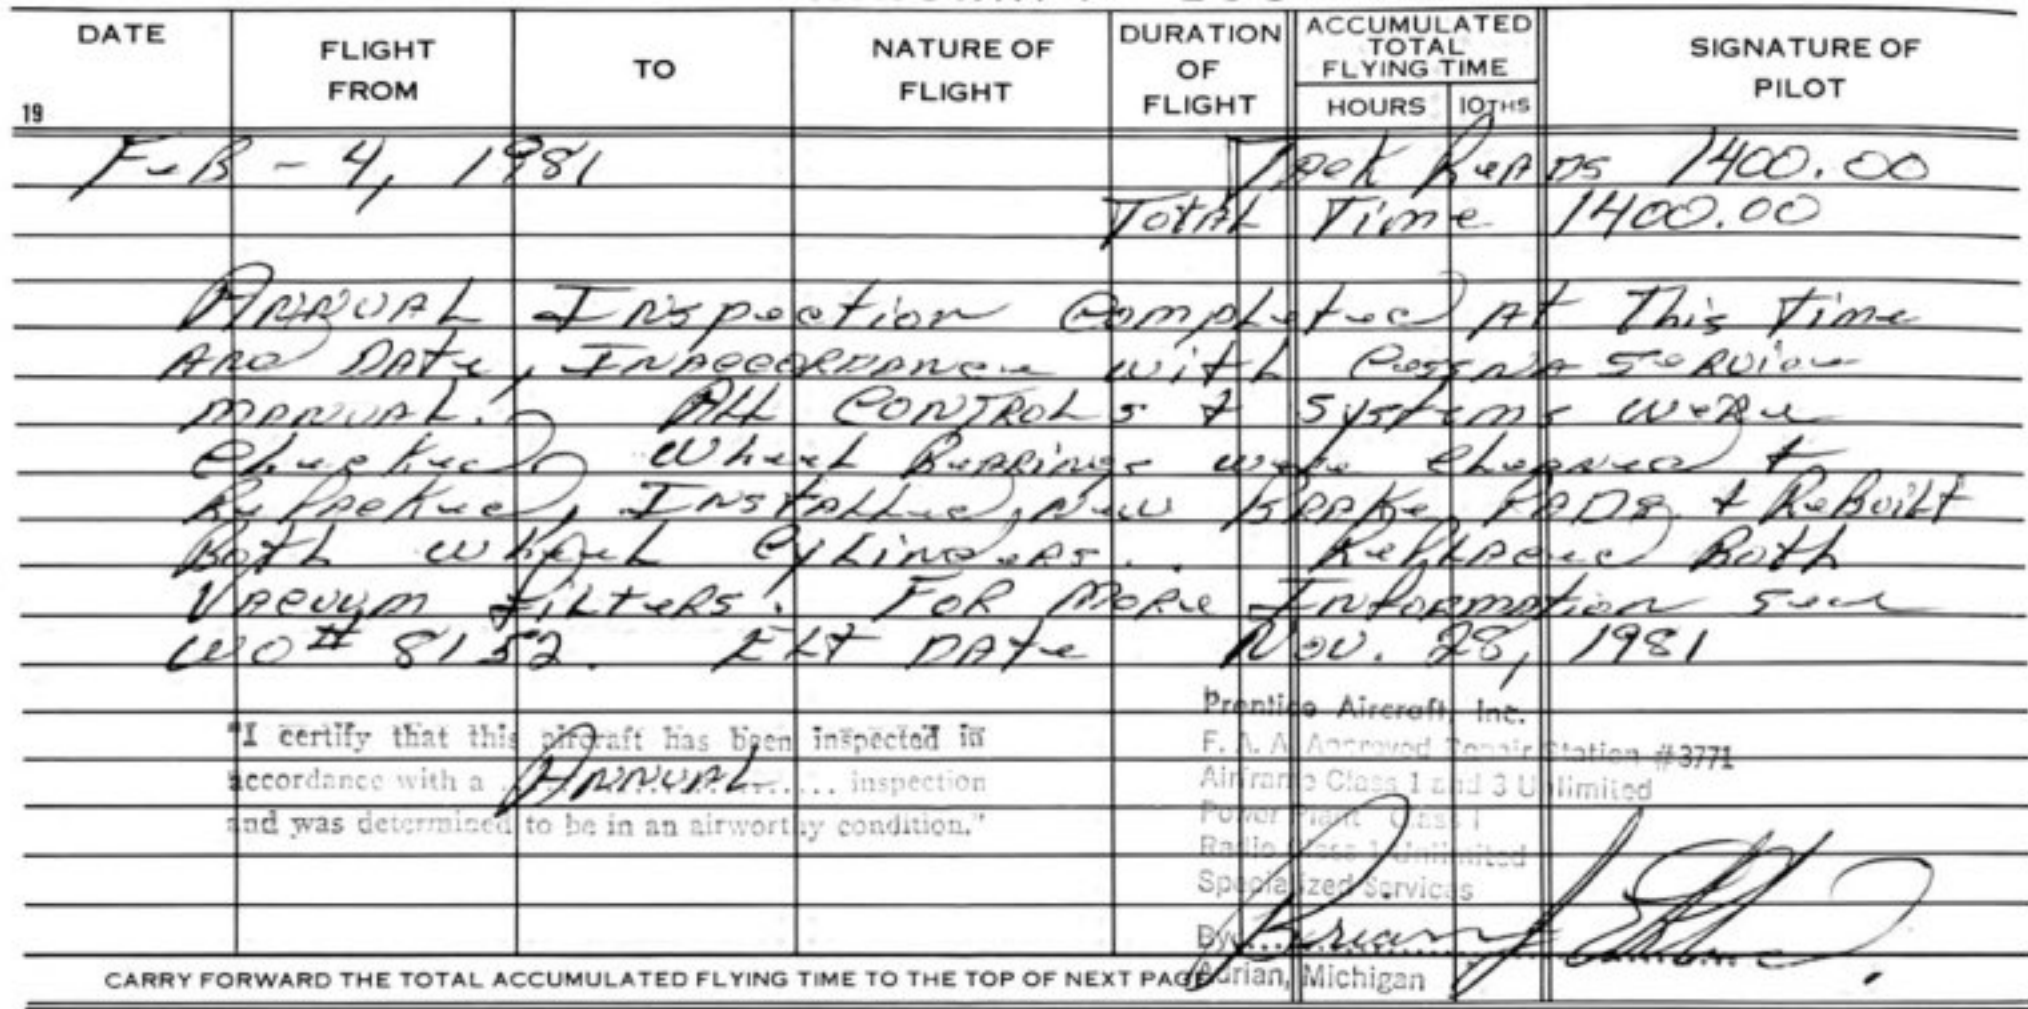 DATE FLIGHT FROM TO NATURE OF FLIGHT DURATION OF FLIGHT ACCUMULATED TOTAL FLYING TIME HOURS 10THS SIGNATURE OF PILOT
19
FeB - 4, 1981 Tack Reads 1400.00
Total Time 1400.00
Annual Inspection Completed At This Time
And Date, Inaccordance with Cessna Service
manual. All Controls & systems were
Checked, Wheel Bearings were Cleaned &
RePacked, Installed New Brake PADs & ReBuilt
Both wheel Cylinders. Replaced Both
Vacuum filters. For More Information see
WO# 8152. ELT DAte Nov. 28, 1981
"I certify that this aircraft has been inspected in
accordance with a Annual inspection
and was determined to be in an airworthy condition."
Prentice Aircraft, Inc.
F. A. A. Approved Repair Station #3771
Airframe Class 1 and 3 Unlimited
Power Plant Class 1
Radio Class 1 Unlimited
Specialized Services
By Brian
Adrian, Michigan
CARRY FORWARD THE TOTAL ACCUMULATED FLYING TIME TO THE TOP OF NEXT PAGE